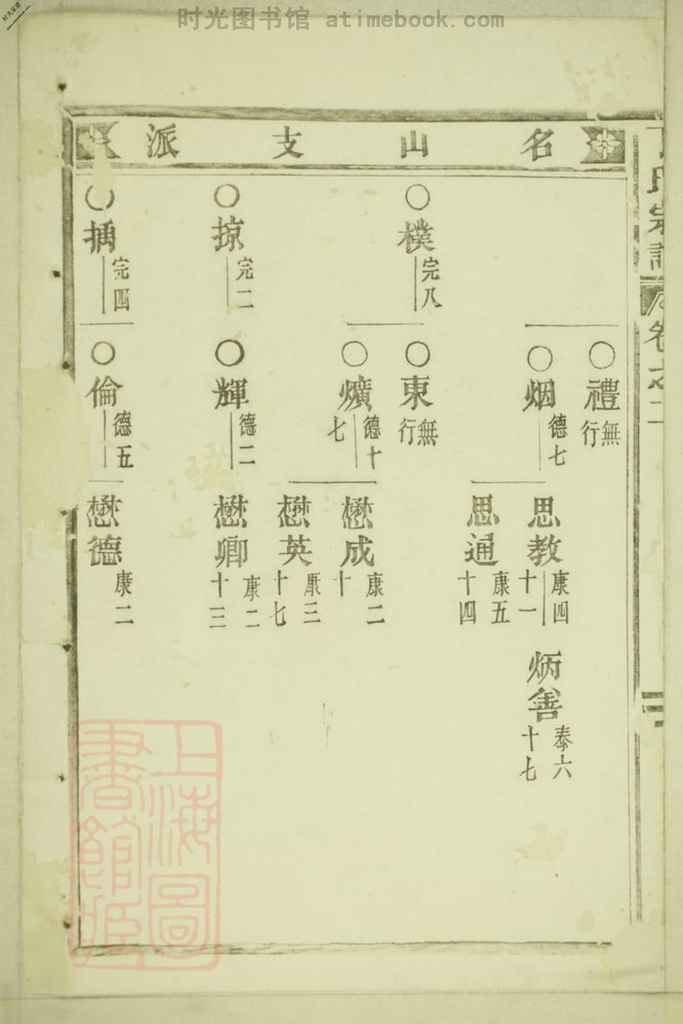 时光图书馆 atimebook.com
名山支派
氏宗譜
卷七二
禮 無行
烟 德七
思教 康四十一
炳善 泰六十七
思通 康五十四
樸 完八
東 無行
爌 德十七
懋成 康二十
懋英 康三十七
掠 完二
輝 德二
懋卿 康二十三
完四
倫 德五
懋德 康二
上海圖書館藏